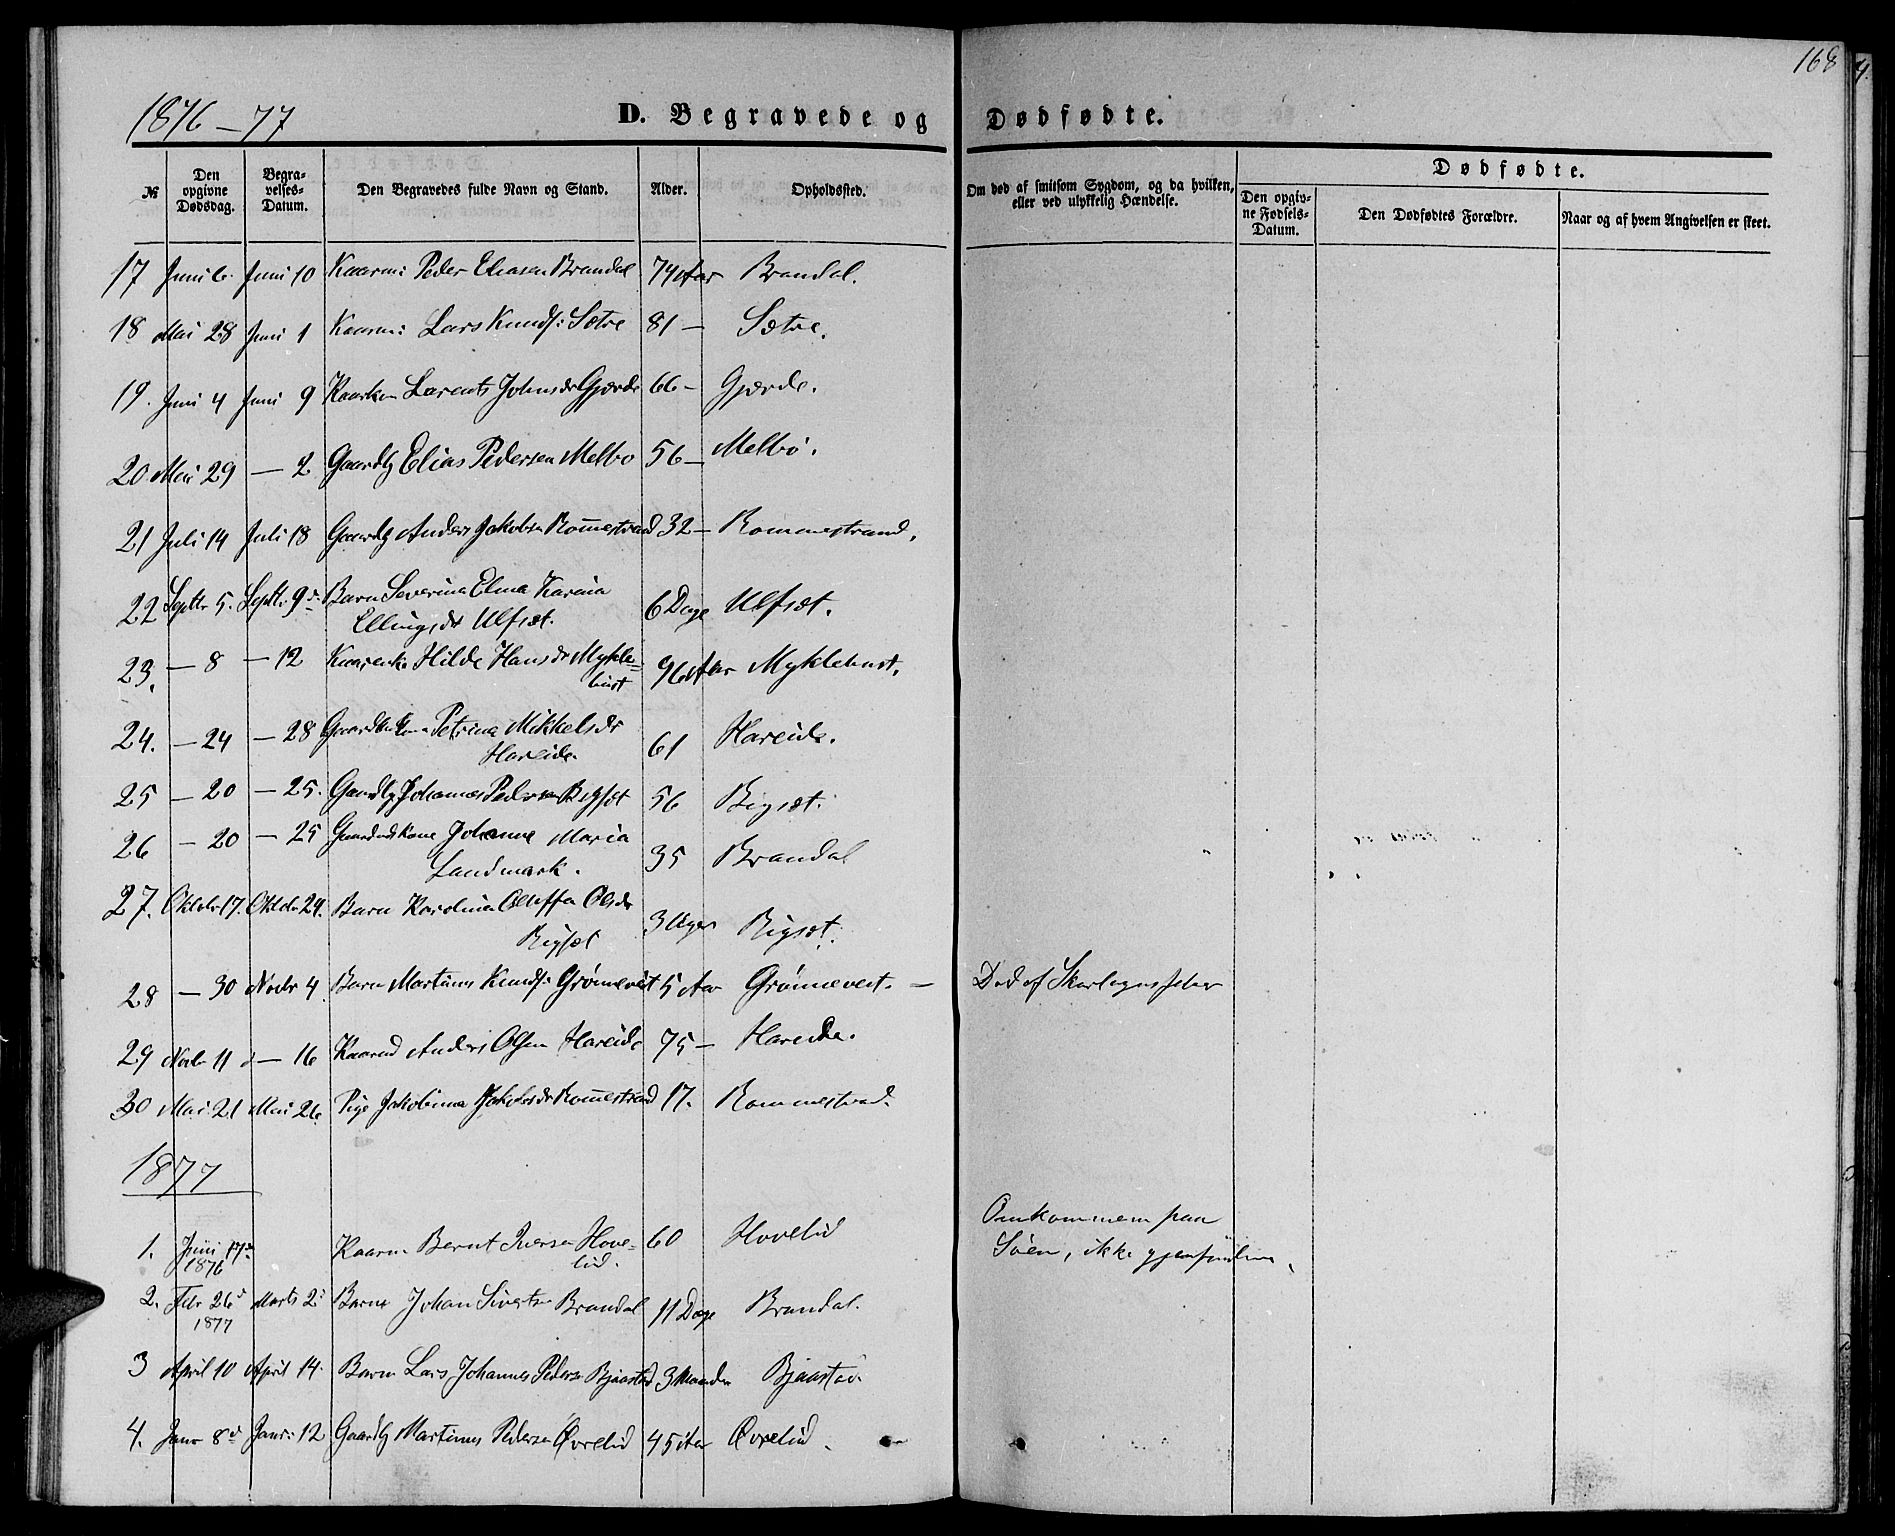 168
1876-77
D. Begravede og Dødfødte.
№
Den opgivne Dødsdag.
Begravelses-Datum.
Den Begravedes fulde Navn og Stand.
Alder.
Opholdssted.
Om død af smitsom Sygdom, og da hvilken, eller ved ulykkelig Hændelse.
Dødfødte.
Den opgivne Fødsels-Datum.
Den Dødfødtes Forældre.
Naar og af hvem Angivelsen er skeet.
17 Juni 6. Juni 10 Kaarm: Peder Eliasen Brandal 74 Aar Brandal.
18 Mai 28 Juni 1 Kaarm: Lars Knuds: Sætre 81 — Sætre.
19. Juni 4 Juni 9 Kaarkon Larents Johnsdr Gjerde 66 — Gjerde.
20. Mai 29 — 2 Gaardbg Elias Pedersen Melbø 56 — Melbø.
21 Juli 14 Juli 18 Gaardbg Anders Jakobsn Rom̄estrand 32 — Rommestrand.
22 Septbr 5. Septbr 9d. Barn Severina Elma Karina
Ellingsdr Ulfsæt. 6 Dage Ulfsæt.
23. — 8 — 12 Kaarenke Hilde Hansdr Mykle-
bust 96 Aar Myklebust.
24. — 24 — 28 Petrina Mikkelsdr
Hareide 61 Hareide.
25 — 20 — 25. Gaardbg Johannes Pedersen Bigset 56 Bigsæt.
26 — 20 — 25 Gaardmdskone Johanne Maria
Landmark. 35 Brandal
27. Oktobr 17. Oktobr 29. Barn Karolina Oluffa Olsdr
Bigset 3 Uger Bigsæt.
28 — 30 Novbr 4. Barn Martinus Knuds: Grønnevet 5 Aar Grønnevet. — Død af Skarlagensfeber
29 Novbr 11 — 16 Kaarmd Anders Olsen Hareide 75 — Hareide.
30 Mai 21 Mai 26. Pige Jakobina Jakobsdr Rom̄estrand 17. Rommestrand.
1877
1. Juni 17de
1876 Kaarm Bernt Iversen Hove-
lid. 60 Hovelid Omkommen paa
Søen, ikke gjenfunden.
2. Febr 26d
1877 Marts 2d Barn Johan Sivertsn Brandal 11 Dage Brandal.
3 April 10 April 14. Barn Lars Johannes Pedersn Bjaastad 3 Maander Bjaastad.
4. Janr 8d Janr: 12 Gaardbg Martinus Pedersen Øvrelid 45 Aar Øvrelid.